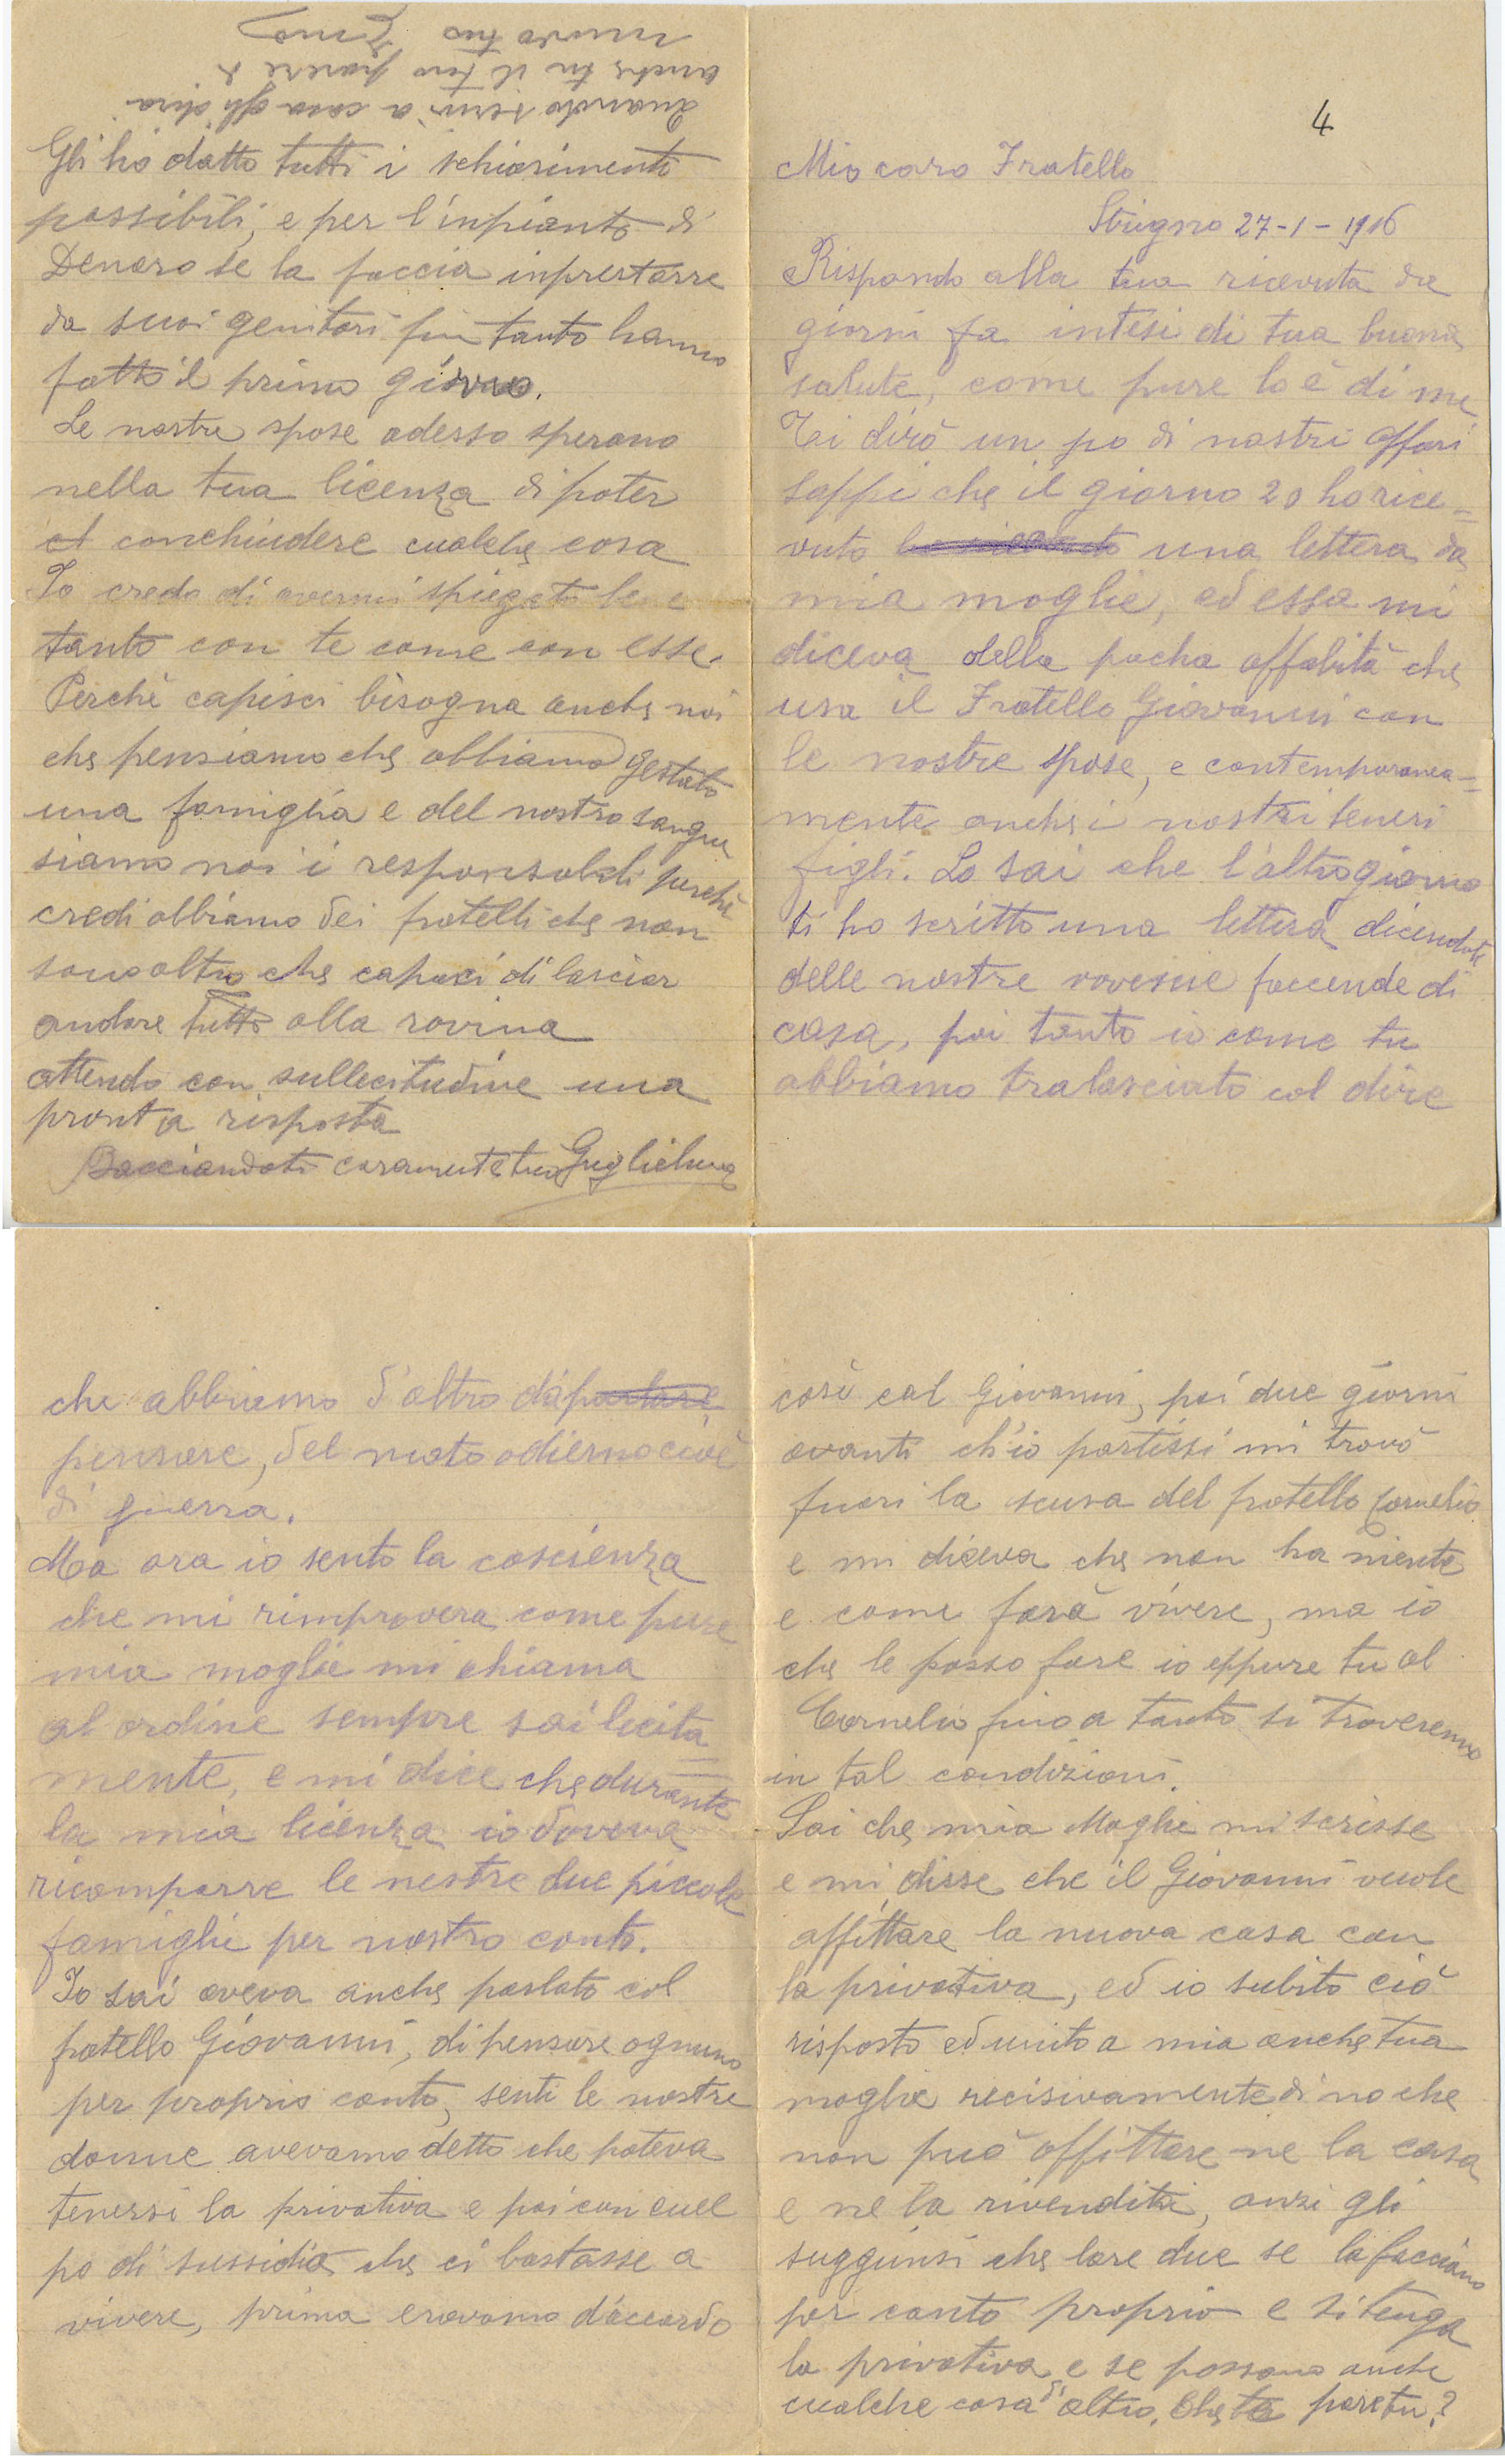 4
Mio caro Fratello
Strigno 27-1-1916
Rispondo alla tua ricevuta da
giorni fa intesi di tua buona
salute, come pure lo è di me
Ti dirò un po di nostri affari
sappi che il giorno 20 ho rice=
vuto una lettera da
mia moglie, ed essa mi
diceva della pocha affabità che
usa il Fratello Giovanni con
le nostre spose, e contemporanea=
mente anche i nostri teneri
figli. Lo sai che l'altro giorno
ti ho scritto una lettera dicendoti
delle nostre rovescie faccende di
casa, poi tanto io come tu
abbiamo tralasciato col dire
che abbiamo d'altro da parlare
pensare, del moto odierno cioè
di guerra.
Ma ora io sento la coscienza
che mi rimprovera come pure
mia moglie mi chiama
al ordine sempre sai licita
mente, e mi dice che durante
la mia licenza io doveva
ricomporre le nostre due piccole
famiglie per nostro conto.
Io sai aveva anche parlato col
fratello Giovanni, di pensare ognuno
per proprio conto, senti le nostre
donne avevamo detto che poteva
tenersi la privativa e poi con cuel
po di sussidio che ci bastasse a
vivere, prima eravamo d'accordo
così col Giovanni, poi due giorni
avanti ch'io partissi mi trovò
fuori la scusa del fratello Cornelio
e mi diceva che non ha niente
e come farà vivere, ma io
che le posso fare io eppure tu al
Cornelio fino a tanto si troveremo
in tal condizioni.
Sai che mia Moglie mi scrisse
e mi disse che il Giovanni vuole
affittare la nuova casa con
la privativa, ed io subito ciò
risposto ed unito a mia anche tua
moglie recisivamente di no che
non può affittare ne la casa
e ne la rivendita, anzi gli
suggiunsi che lore due se la facciano
per conto proprio e si tenga
la privativa e se possano anche
cualche cosa di altro. Che te pare tu?
Gli ho datto tutti i schiarimenti
possibili, e per l'inpianto di
Denaro se la faccia inprestarre
da suoi genitori fin tanto hanno
fatto il primo giovno.
Le nostre spose adesso sperano
nella tua licenza di poter
conchiudere cualche cosa
Io credo di avermi spiegato be e
tanto con te come con esse.
Perchè capisci bisogna anche noi
che pensiamo che abbiamo gestato
una famiglia e del nostro sangue
siamo noi i responsabili perchè
credi abbiamo dei fratelli che non
sono altro che capaci di lasciar
andare tutto alla rovina
attendo con sullecitudine una
pronta risposta
Bacciandoti caramente tuo Guglielmo
Quando scrivi a casa gli dirai
anche tu il tuo parere di
nuovo tuo